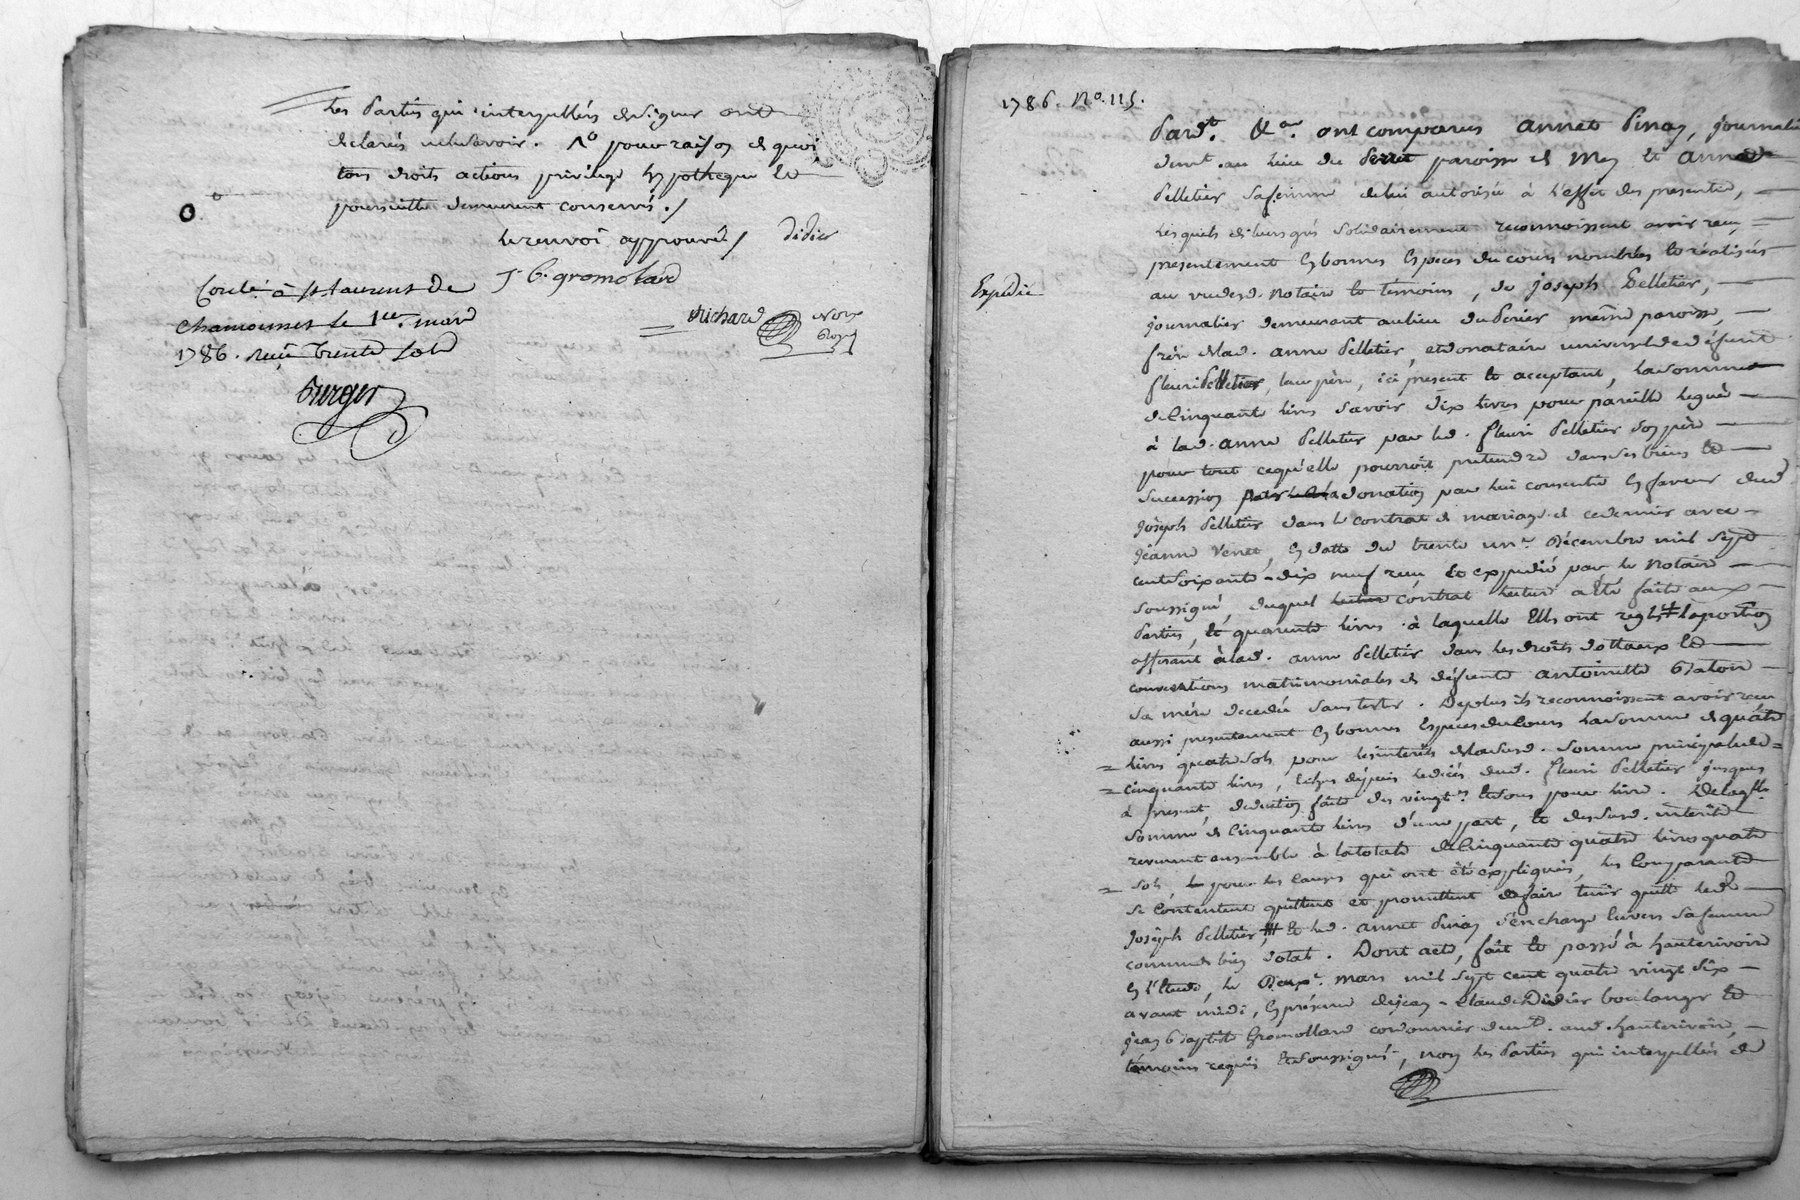 Les Parties qui interpellées de signer ont
déclarés ne le savoir. No pour raison de quoi
tous droits actions privilege hypotheque et
poursuitte demeurent conservés./
le renvoi approuvé/ Didier
J. B. gromolard
Controlé à St Laurent de
Chamousset le 1er mars
1786. reçu trente sols
Richard Nore Royal
Burger
1786. No. 115.
Expedié
Pardt. &a. ont comparus annet Pinay, journalier
demt. au lieu du Perret paroisse de Mey et anne
Pelletier sa femme de lui autorisée à l'effet des presentes,
lesquels de leurs grés solidairement reconnoissent avoir reçu
presentement en bonnes Especes du cours nombrées et réalisées
au vu desd. Notaire et témoins, de joseph Pelletier,
journalier demeurant au lieu du Perier même paroisse,
frère de lad. anne Pelletier, et donataire universel de défunt
fleuri Pelletier, leur père, ici present et acceptant, la somme
de Cinquante livres savoir dix livres pour pareille leguée
à lad. anne Pelletier par led. fleuri Pelletier son père
pour tout ce qu'elle pourroit pretendre dans ses biens et
succession donation par lui consentie en faveur dud.
joseph Pelletier dans le contrat de mariage de ce dernier avec
jeanne Venet, en datte du trente un Décembre mil sept
cent soixante-dix neuf reçu et expedié par le Notaire
soussigné, duquel contrat lecture a été faite aux
Parties, et quarante livres à laquelle Elles ont reglé la portion
afferant à lad. anne Pelletier dans les droits dottaux et
conventions matrimoniales de défunte antoinette
sa mère decedée sans tester. Deplus ils reconnoissent avoir reçu
aussi presentement en bonnes Especes du Cours la somme de quatre
livres quatre sols, pour les interets de la susd. somme principale de
cinquante livres, échus depuis le décès dud. fleuri Pelletier jusques
à present, deduction faite des vingt. et sous pour livre. Delaqlle
somme de Cinquante livres d'une part, et des susd. interets
revenant ensemble à la totale de Cinquante quatre livres quatre
sols, pour les causes qui ont été expliquées, les Comparants
se Contentent quittent et promettent de faire tenir quitte led.
joseph Pelletier, et led. annet Pinay s'en charge Envers sa femme
comme bien dotal. Dont acte, fait et passé à hauterivoire
en l'Etude, le Deux. mars mil sept cent quatre vingt six
avant midi, en présence de jean-Claude Didier boulanger et
jean Baptiste Gromollard cordonnier demt. aud. hauterivoire,
témoins requis et soussignés, non les Parties qui interpellées de